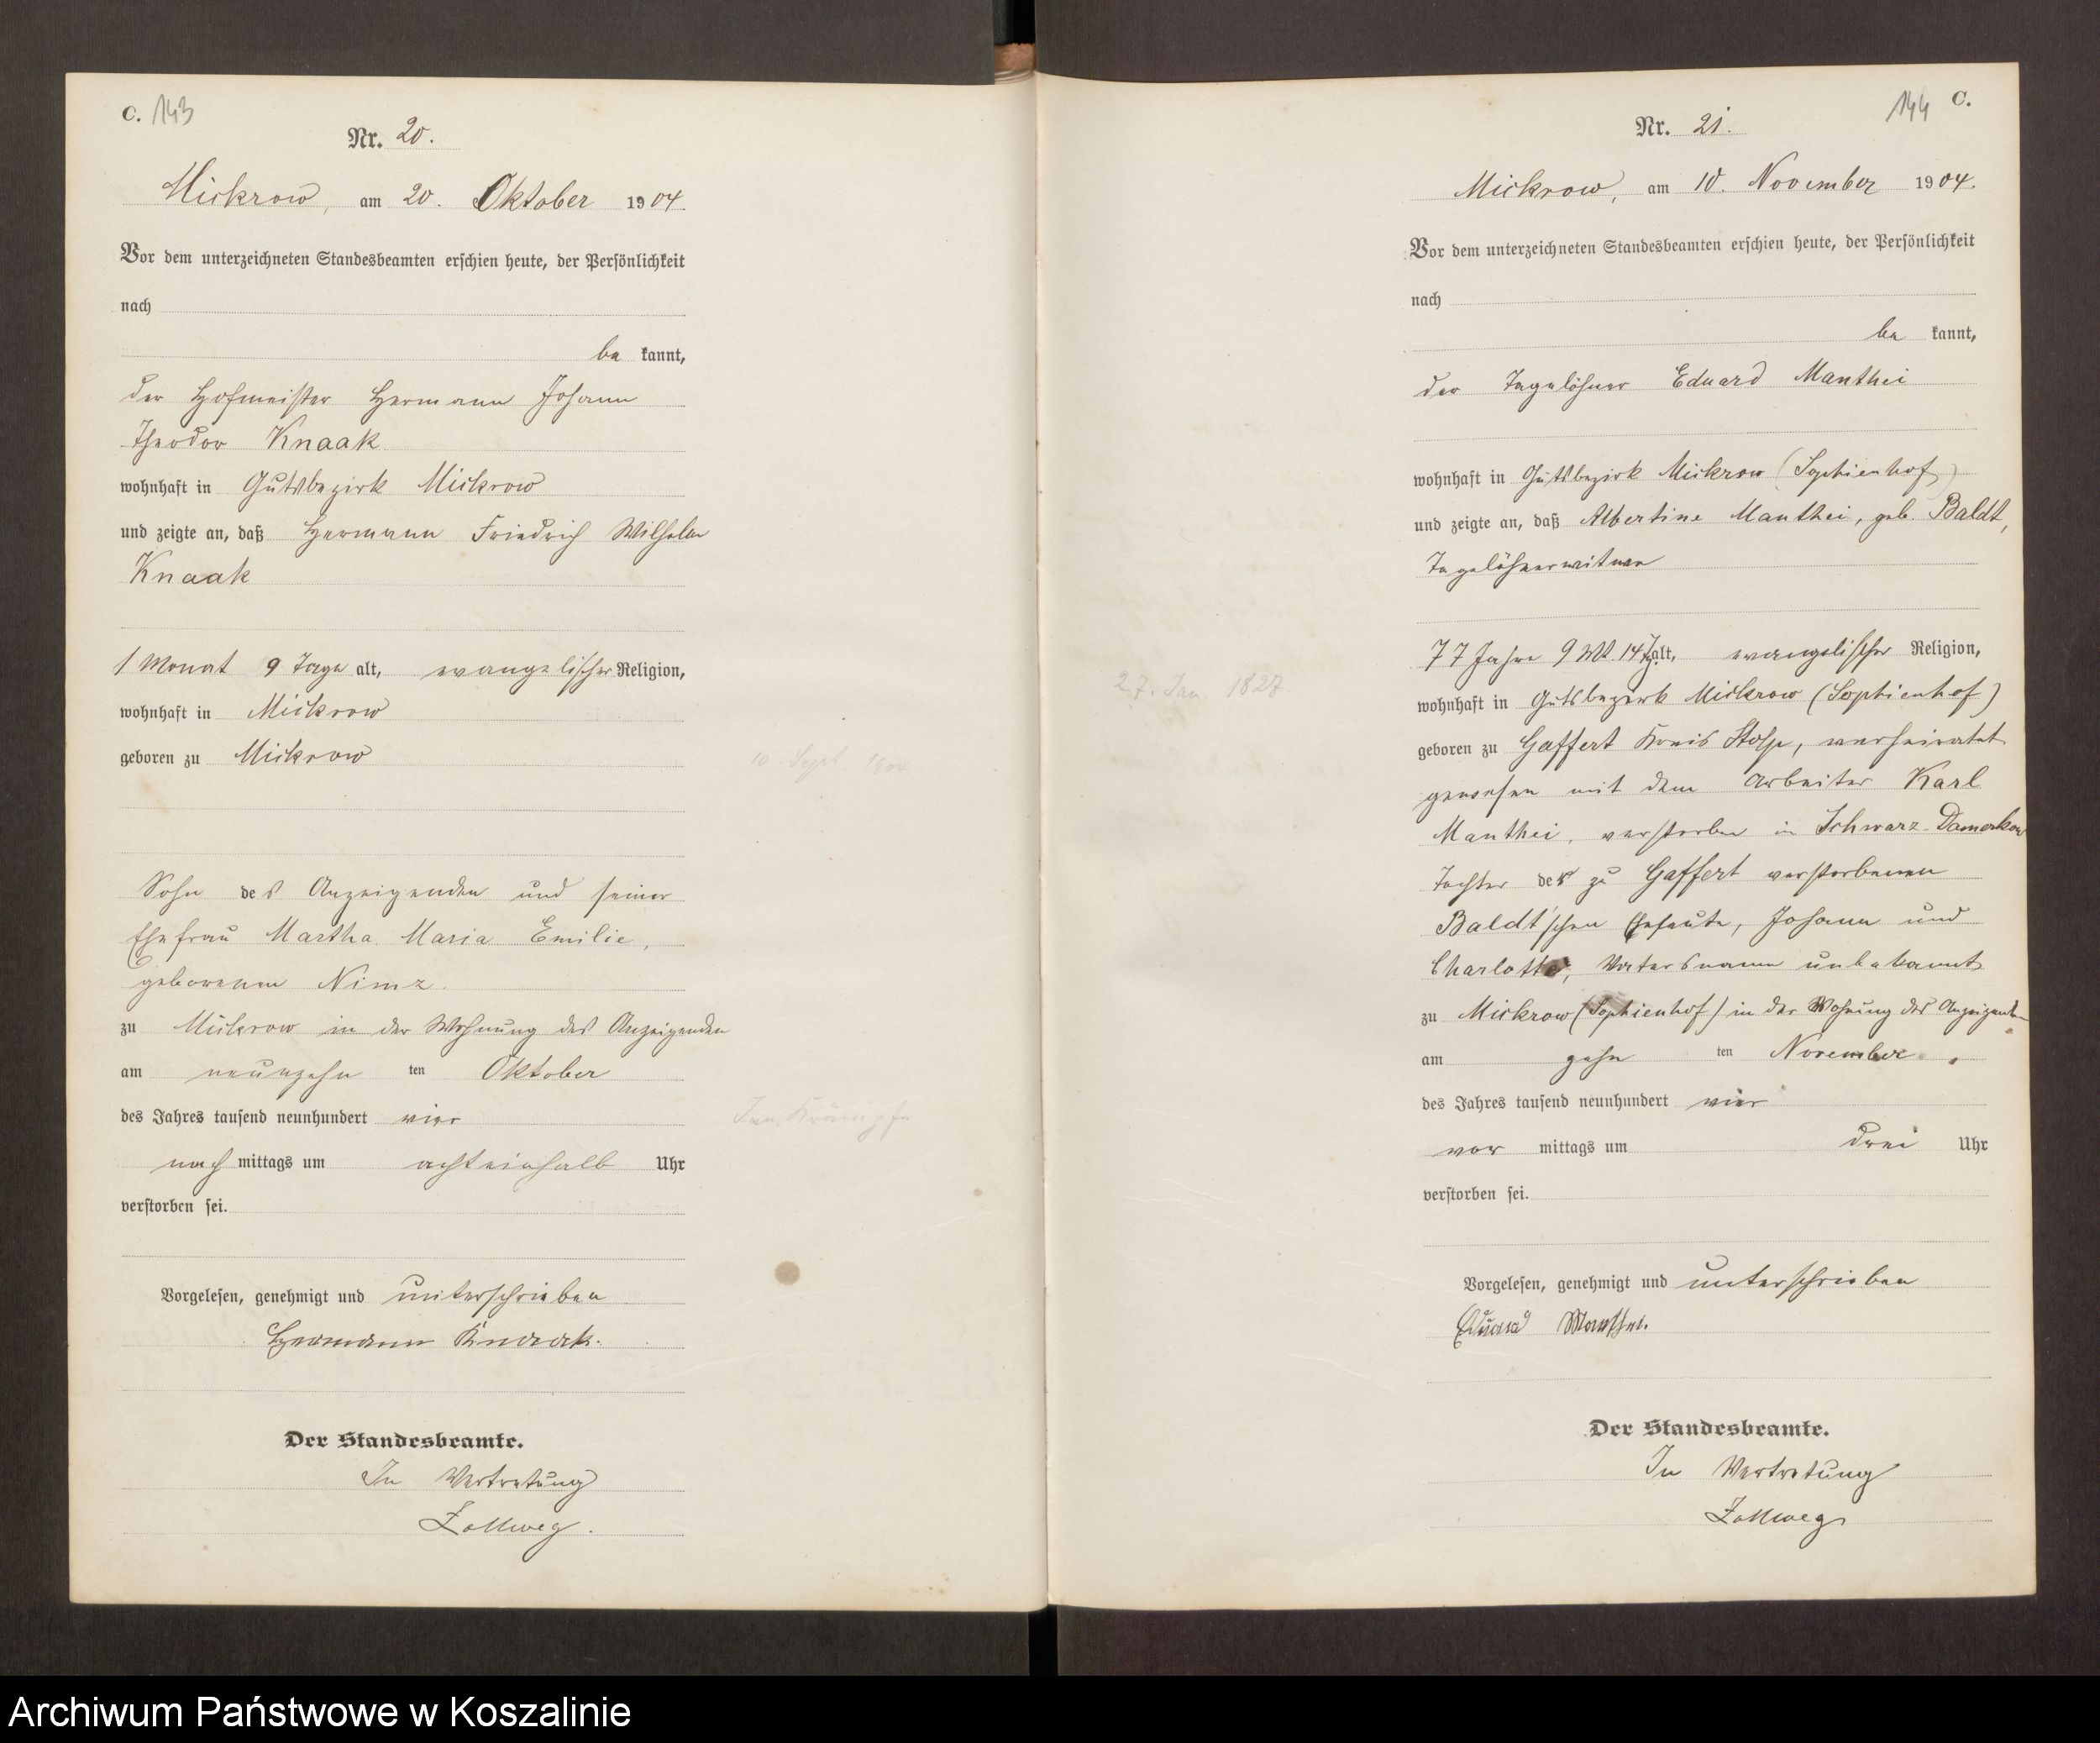 C. 143
Nr. 20.
Mickrow, am 20. Oktober 1904.
Vor dem unterzeichneten Standesbeamten erschien heute, der Persönlichkeit
nach
be kannt,
der Hofmeister Hermann Johann
Theodor Knaak
wohnhaft in Gutsbezirk Mickrow
und zeigte an, daß Hermann Friedrich Wilhelm
Knaak
1 Monat 9 Tage alt, evangelischer Religion,
wohnhaft in Mickrow
geboren zu Mickrow
10 Sept 1904
Sohn des Anzeigenden und seiner
Ehefrau Martha Maria Emilie,
geborenen Nimz.
zu Mickrow in der Wohnung des Anzeigenden
am neunzehn ten Oktober
des Jahres tausend neunhundert vier
Krämpfe
nach mittags um achteinhalb Uhr
verstorben sei.
Vorgelesen, genehmigt und unterschrieben
Hermann Knaak.
Der Standesbeamte.
In Vertretung
Zollweg.
144 C.
Nr. 21.
Mickrow, am 10. November 1904.
Vor dem unterzeichneten Standesbeamten erschien heute, der Persönlichkeit
nach
be kannt,
der Tagelöhner Eduard Manthei
wohnhaft in Gutsbezirk Mickrow (Sophienhof)
und zeigte an, daß Albertine Manthei, geb. Baldt,
Tagelöhnerwitwe
77 Jahre 9 M. 14 Tg. alt, evangelischer Religion,
27. Jan. 1827
wohnhaft in Gutsbezirk Mickrow (Sophienhof)
geboren zu Gaffert Kreis Stolp, verheiratet
gewesen mit dem Arbeiter Karl
Manthei, verstorben in Schwarz-Damerkow
Tochter der zu Gaffert verstorbenen
Baldt'schen Eheleute, Johann und
Charlotte, Vatersname unbekannt
zu Mickrow (Sophienhof) in der Wohnung des Anzeigenden
am zehn ten November
des Jahres tausend neunhundert vier
vor mittags um drei Uhr
verstorben sei.
Vorgelesen, genehmigt und unterschrieben
Eduard Manthei.
Der Standesbeamte.
In Vertretung
Zollweg
Archiwum Państwowe w Koszalinie